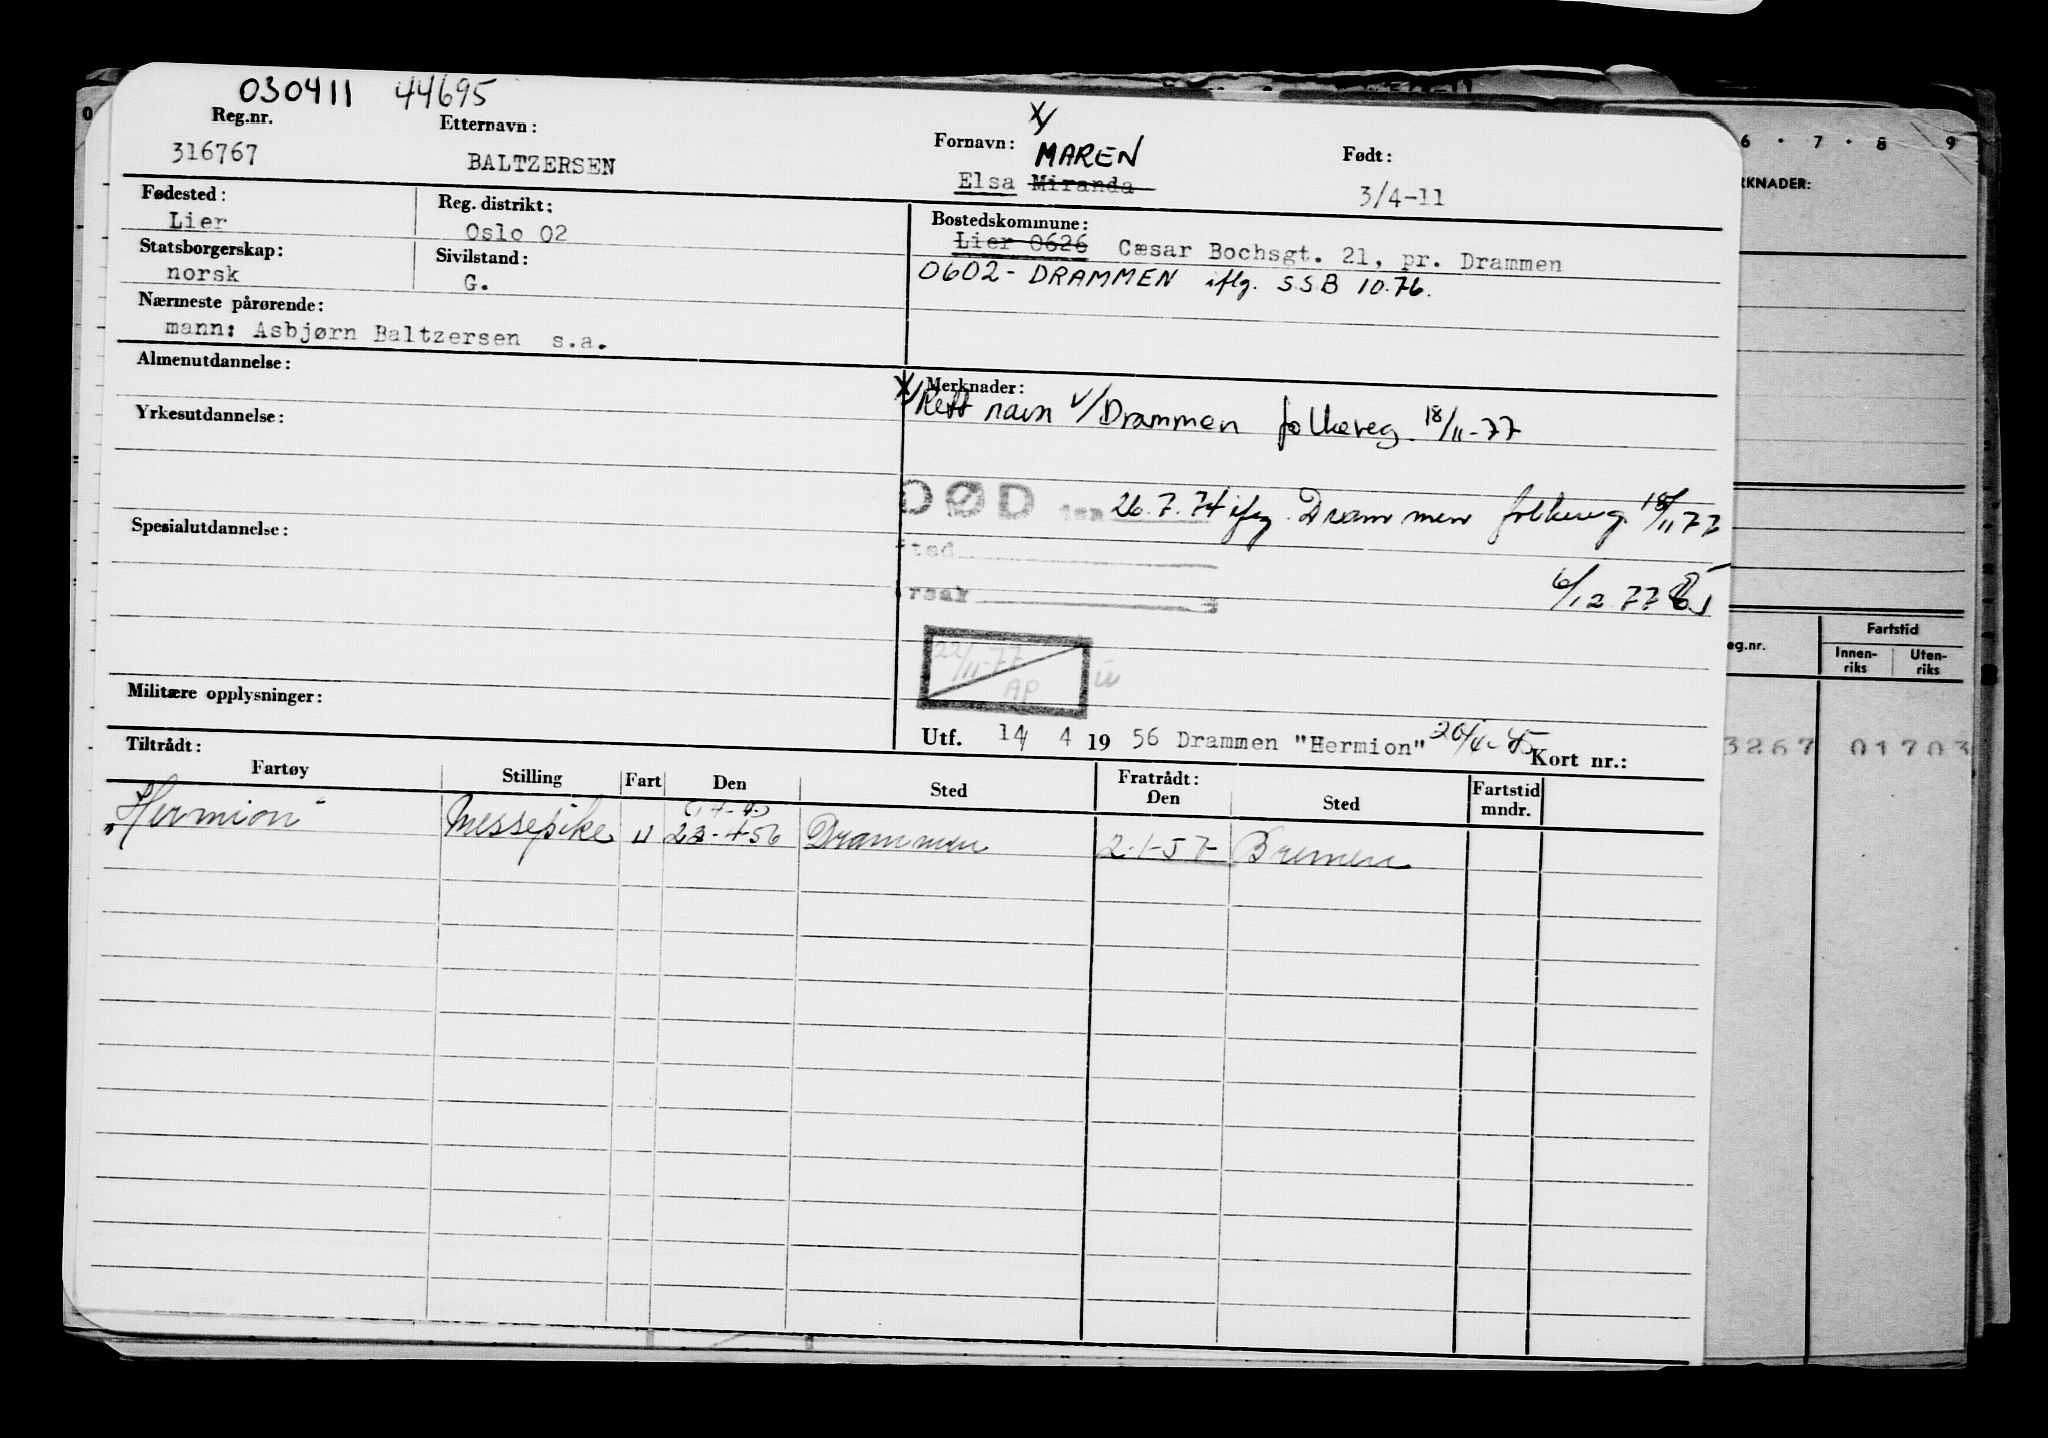 030411 44695
Reg.nr.
316767
Etternavn:
BALTZERSEN
Fornavn:
MAREN
Elsa Miranda
Født:
3/4-11
Fødested:
Lier
Reg. distrikt:
Oslo 02
Bostedskommune:
Lier 0626 Cæsar Bochsgt. 21, pr. Drammen
0602 - DRAMMEN iflg. SSB 10.76.
Statsborgerskap:
norsk
Sivilstand:
G.
Nærmeste pårørende:
mann: Asbjørn Baltzersen s.a.
Almenutdannelse:
Merknader:
Rett navn v/Drammen folkereg. 18/11-77
Yrkesutdannelse:
DØD den 26.7.74 iflg. Drammen folkereg. 18/11 77
Spesialutdannelse:
sted
rsak
6/12.77
22/11-77
AP
Militære opplysninger:
Utf. 14/ 4 19 56 Drammen "Hermion"
Kort nr.:
Tiltrådt:
Fartøy Stilling Fart Den Sted
Fratrådt:
Den Sted
Fartstid
mndr.
"Hermion" Messepike U 23-4-56 Drammen 2-1-57 Bremen
6 · 7 · 8 9
RKNADER:
eg.nr.
Fartstid
Innen-
riks
Uten-
riks
3267 01703